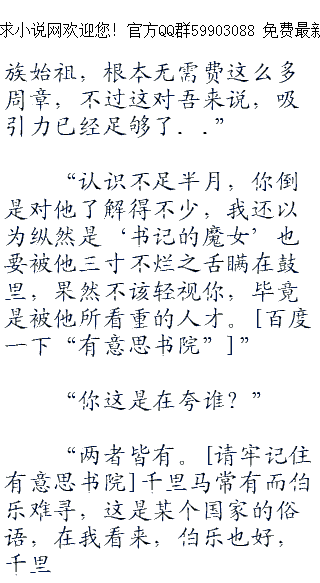 求小说网欢迎您! 官方QQ群59903088 免费最新
族始祖，根本无需费这么多
周章，不过这对吾来说，吸
引力已经足够了．．”
“认识不足半月，你倒
是对他了解得不少，我还以
为纵然是‘书记的魔女’也
要被他三寸不烂之舌瞒在鼓
里，果然不该轻视你，毕竟
是被他所看重的人才。[百度
一下“有意思书院”]”
“你这是在夸谁？”
“两者皆有。[请牢记住
有意思书院]千里马常有而伯
乐难寻，这是某个国家的俗
语，在我看来，伯乐也好，
千里